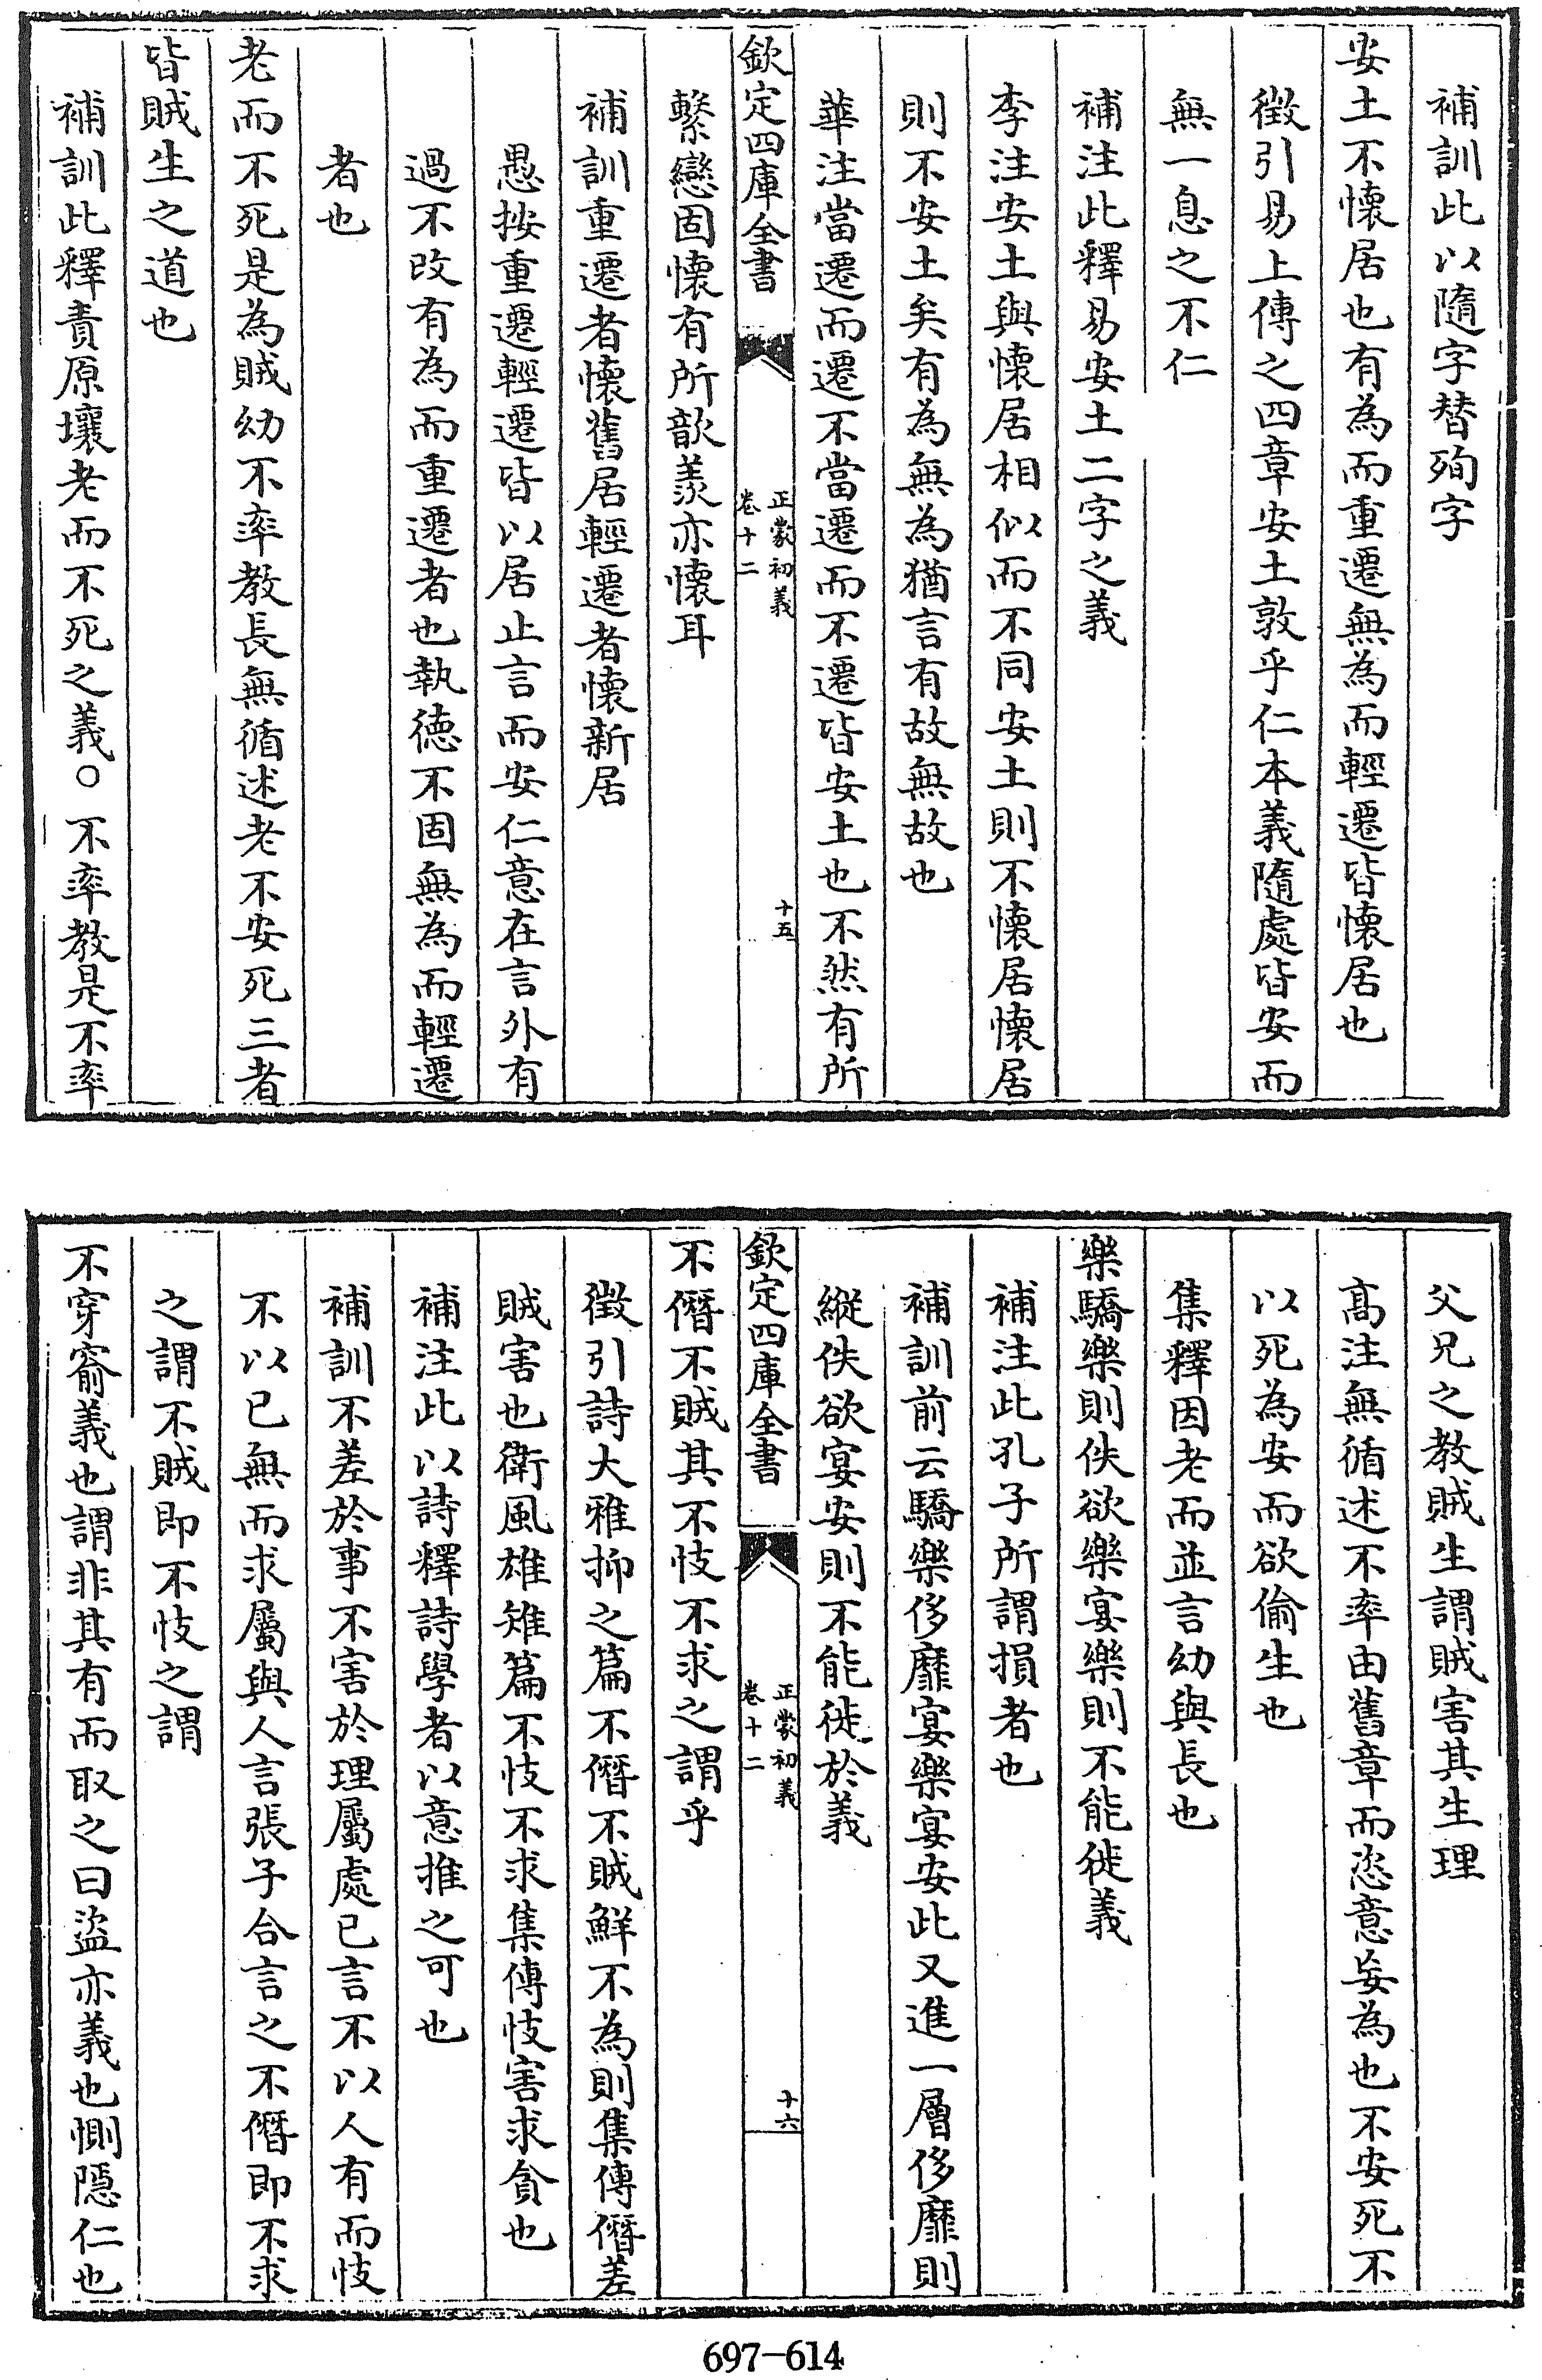 補訓此以隨字替殉字
安土不懷居也有為而重遷無為而輕遷皆懷居也
徵引易上傳之四章安土敦乎仁本義隨處皆安而
無一息之不仁
補注此釋易安土二字之義
李注安土與懷居相似而不同安土則不懷居懷居
則不安土矣有為無為猶言有故無故也
華注當遷而遷不當遷而不遷皆安土也不然有所
欽定四庫全書
正蒙初義
卷十二
十五
繫戀固懷有所歆羨亦懷耳
補訓重遷者懷舊居輕遷者懷新居
愚按重遷輕遷皆以居止言而安仁意在言外有
過不改有為而重遷者也執德不固無為而輕遷
者也
老而不死是為賊幼不率教長無循述老不安死三者
皆賊生之道也
補訓此釋責原壤老而不死之義○不率教是不率
父兄之教賊生謂賊害其生理
高注無循述不率由舊章而恣意妄為也不安死不
以死為安而欲偷生也
集釋因老而並言幼與長也
樂驕樂則佚欲樂宴樂則不能徙義
補注此孔子所謂損者也
補訓前云驕樂侈靡宴樂宴安此又進一層侈靡則
縱佚欲宴安則不能徙於義
欽定四庫全書
正蒙初義
卷十二
十六
不僭不賊其不忮不求之謂乎
徵引詩大雅抑之篇不僭不賊鮮不為則集傳僭差
賊害也衛風雄雉篇不忮不求集傳忮害求貪也
補注此以詩釋詩學者以意推之可也
補訓不差於事不害於理屬處已言不以人有而忮
不以已無而求屬與人言張子合言之不僭即不求
之謂不賊即不忮之謂
不穿窬義也謂非其有而取之曰盜亦義也惻隱仁也
697-614